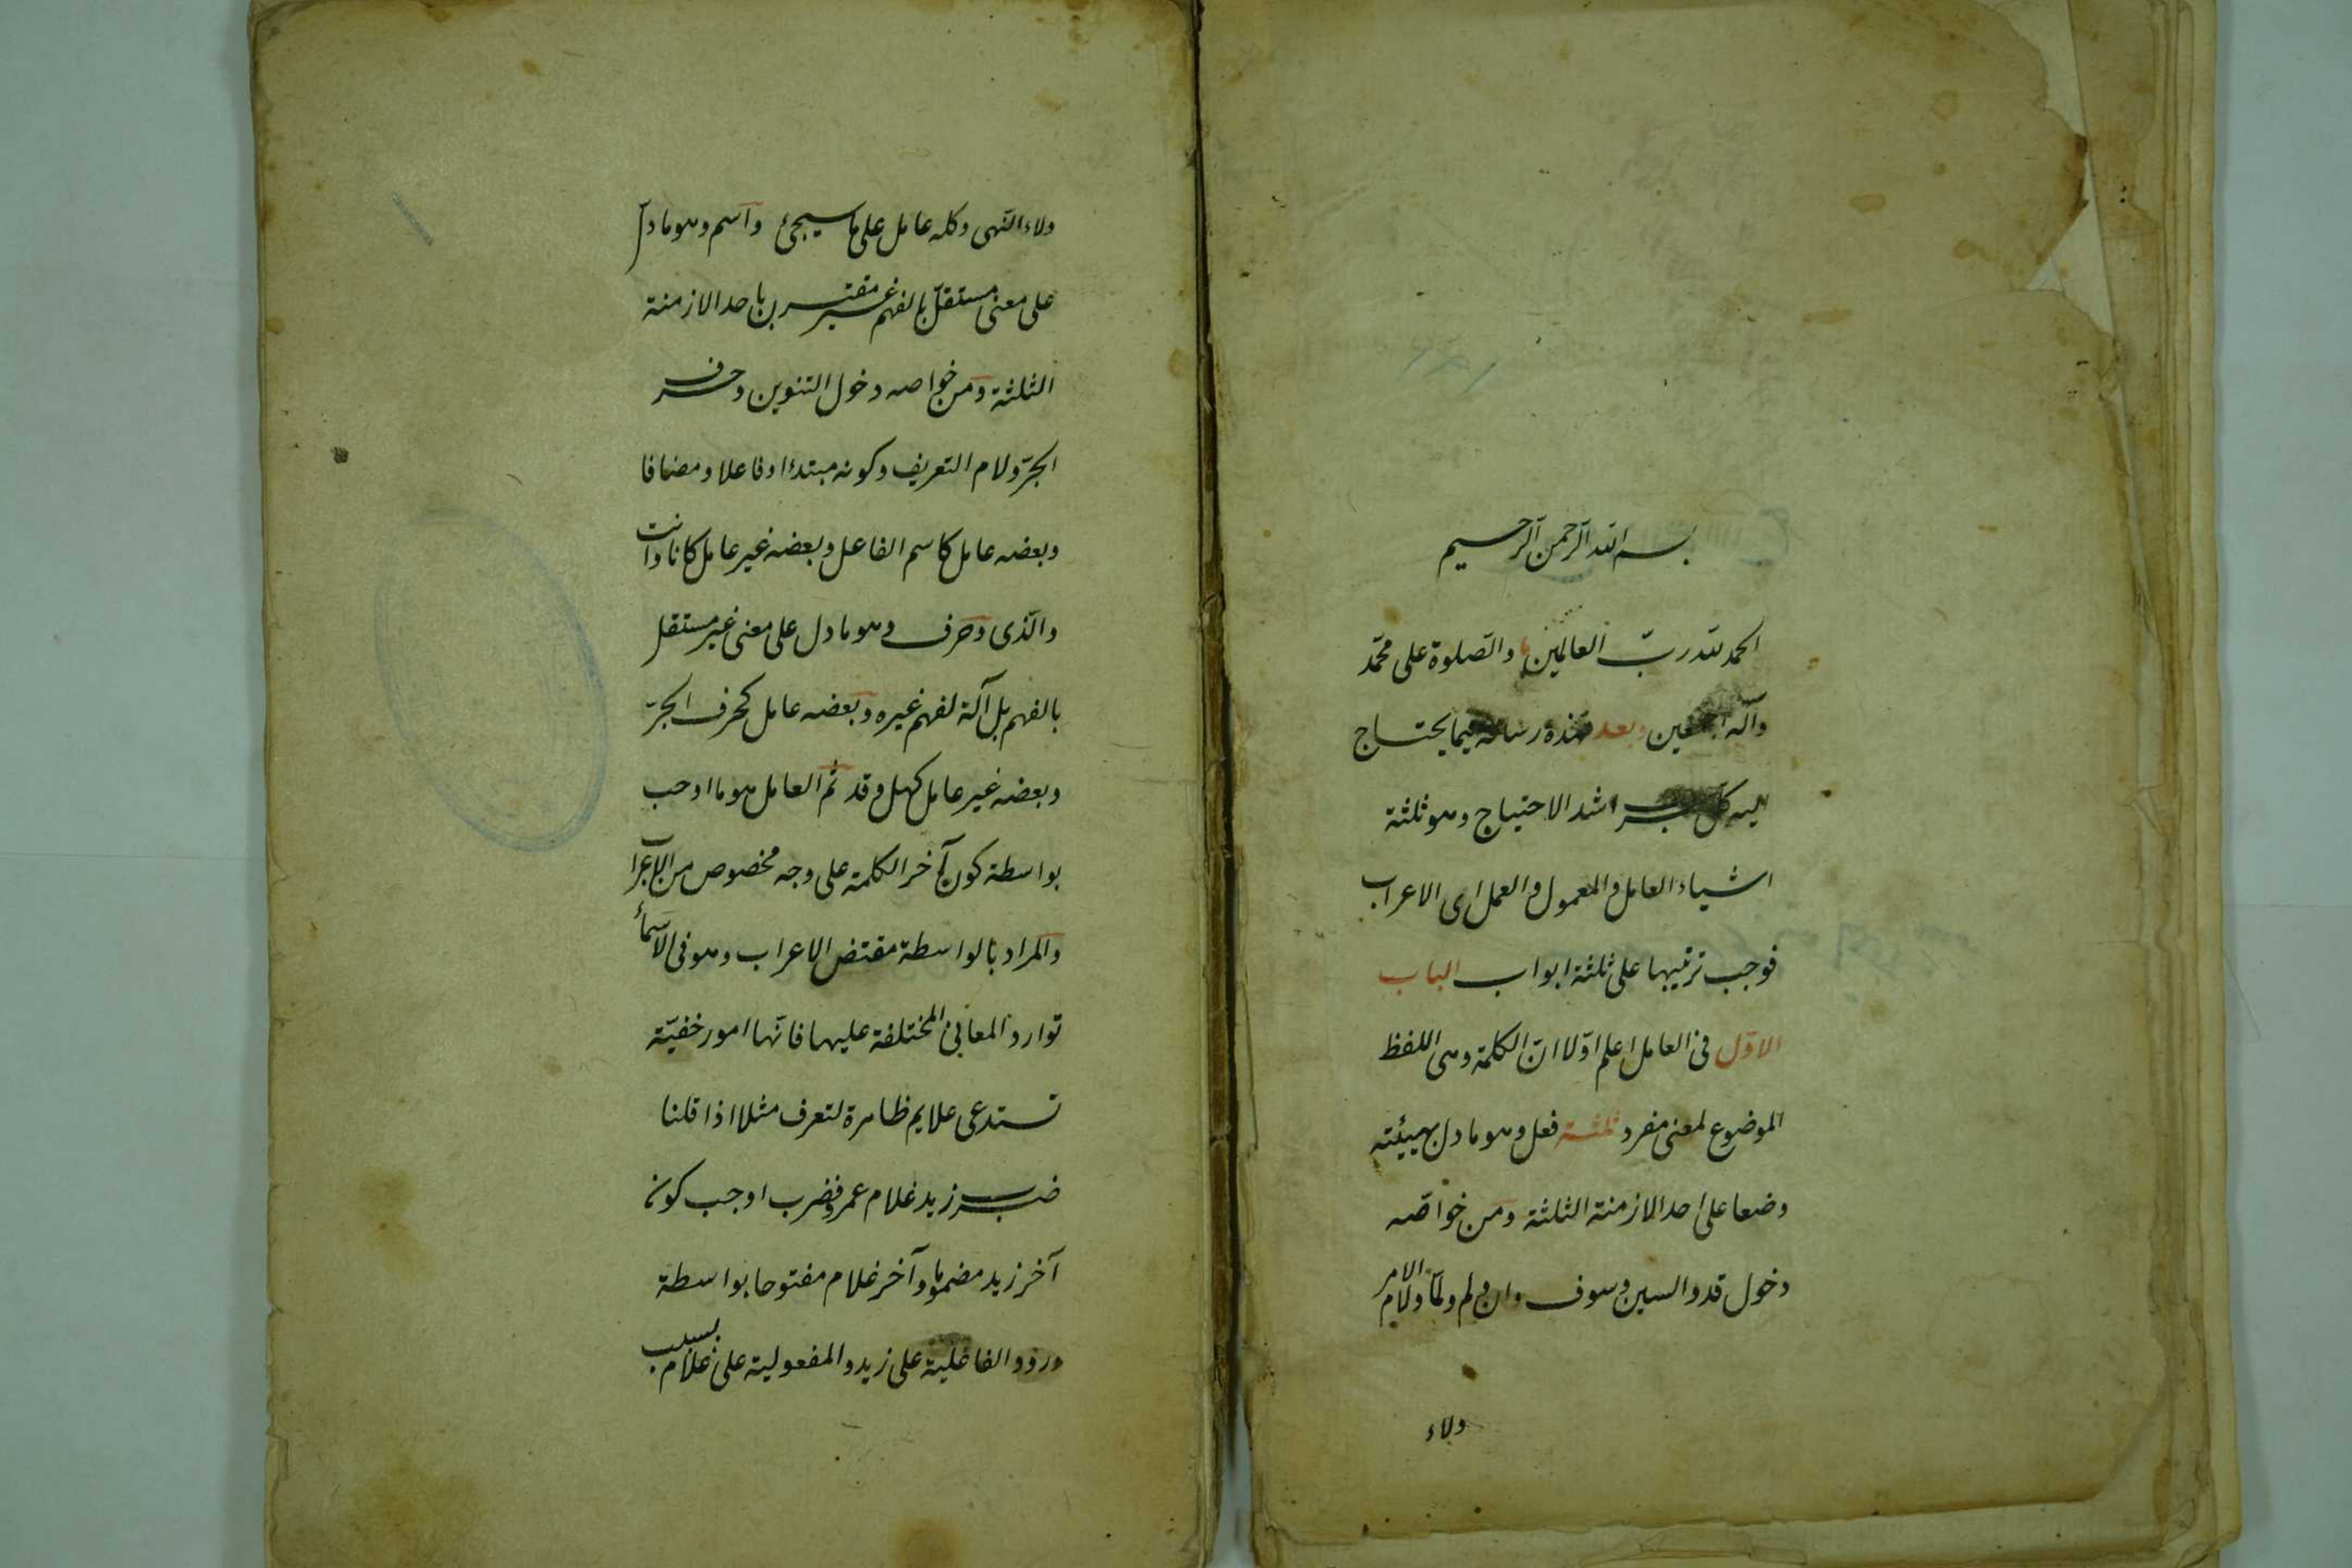 بسم الله الرحمن الرحيم
الحمد لله ربّ العالمين والصّلوة على محمّد
وآله اجمعين وبعد فهذه رسالة فيما يحتاج
اليه كلّ معرب اشد الاحتياج وهو ثلثة
اشياء العامل والمعمول والعمل اى الاعراب
فوجب ترتيبها على ثلثة ابواب الباب
الاوّل فى العامل اعلم اوّلا انّ الكلمة وهى اللفظ
الموضوع لمعنى مفرد ثلثة فعل وهو ما دل بهيئته
وضعا على احد الازمنة الثلثة ومن خواصّه
دخول قد والسين وسوف وان ولم ولمّا ولام الامر
ولاء
ولاء النّهى وكله عامل على ما سيجئ واسم وهو ما دلّ
على معنى مستقلّ بالفهم غير مقترن باحد الازمنة
الثلثة ومن خواصه دخول التنوين وحرف
الجرّ ولام التعريف وكونه مبتدءا وفاعلا ومضافا
وبعضه عامل كاسم الفاعل وبعضه غير عامل كانا وانت
والّذى وحرف وهو ما دل على معنى غير مستقل
بالفهم بل آلة لفهم غيره وبعضه عامل كحرف الجرّ
وبعضه غير عامل كهل وقد ثم العامل هو ما اوجب
بواسطة كون آخر الكلمة على وجه مخصوص من الاعراب
والمراد بالواسطة مقتض الاعراب وهو فى الاسماء
توارد المعانى المختلفة عليها فانّها امور خفيّة
تستدعى علايم ظاهرة لتعرف مثلا اذا قلنا
ضرب زيد غلام عمرو فضرب اوجب كون
آخر زيد مضموما وآخر غلام مفتوحا بواسطة
ورود الفاعلية على زيد والمفعولية على غلام بسبب